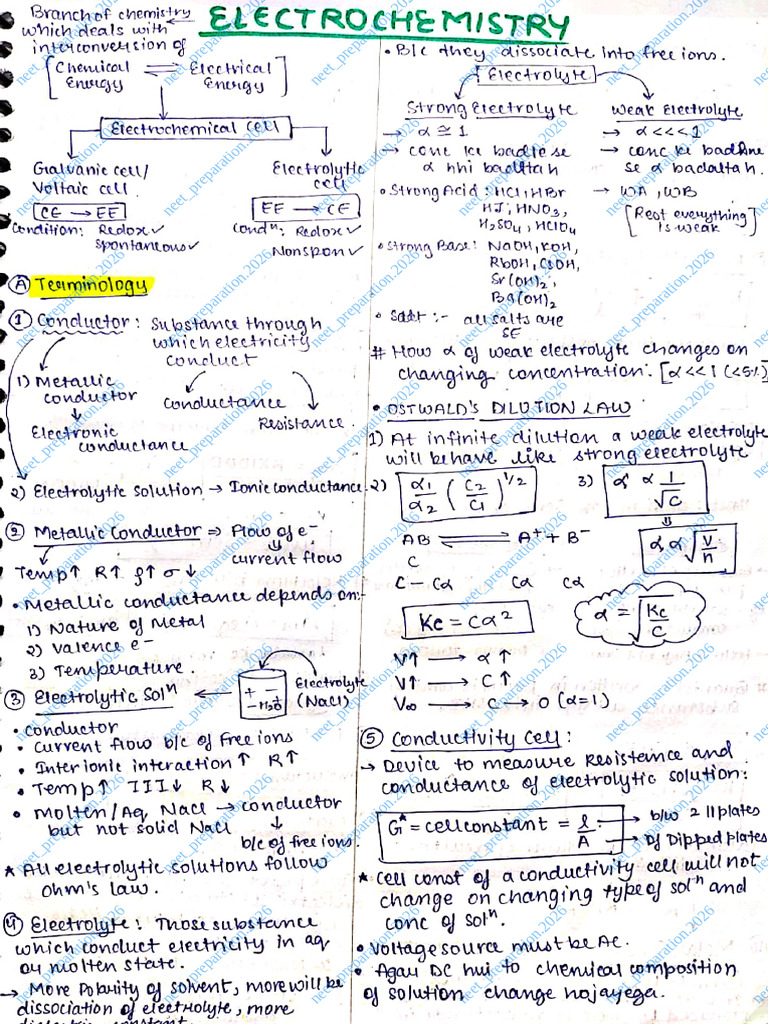 ELECTROCHEMISTRY
Branch of chemistry
which deals with
interconversion of
[Chemical ⇌ Electrical]
Energy Energy
Electrochemical cell
Galvanic cell/
Voltaic cell
CE → EE
Condition: Redox ✓
Spontaneous ✓
Electrolytic
cell
EE → CE
Condⁿ: Redox ✓
Nonspon ✓
(A) Terminology
① Conductor: Substance through
which electricity
conduct
Conductance
Resistance.
1) Metallic
conductor
Electronic
conductance
2) Electrolytic solution → Ionic conductance.
② Metallic Conductor ⇒ Flow of e⁻
current flow
Temp↑ R↑ ρ↑ σ↓
• Metallic conductance depends on:-
1) Nature of Metal
2) Valence e⁻
3) Temperature.
③ Electrolytic Solⁿ
+ –
– H₂O
Electrolyte
(NaCl)
• conductor
• current flow b/c of free ions
• Inter ionic interaction ↑ R↑
• Temp↑ III↓ R↓
• Molten/Aq NaCl → conductor
but not solid NaCl
b/c of free ions.
★ All electrolytic solutions follow
ohm's law.
4) Electrolyte: Those substance
which conduct electricity in aq
or molten state.
→ More Polarity of solvent, more will be
dissociation of electrolyte, more
dielectric constant
• B/c they dissociate into free ions.
Electrolyte
Strong Electrolyte
→ α ≅ 1
→ conc ke badlne se
α nhi badltah
• Strong Acid: HCl, HBr
HI, HNO₃,
H₂SO₄, HClO₄
• Strong Base: NaOH, KOH,
RbOH, CsOH,
Sr(OH)₂,
Ba(OH)₂
• Salt :- all salts are
SE
Weak Electrolyte
→ α <<< 1
→ conc ke badlne
se α badaltah.
→ WA, WB
[Rest everything
is weak]
# How α of weak electrolyte changes on
changing concentration. [α << 1 (<5%)
• OSTWALD'S DILUTION LAW
1) At infinite dilution a weak electrolyte
will behave like strong electrolyte
2) α₁/α₂ (C₂/C₁)^1/2
3) α ∝ 1/√C
α ∝ √V/n
AB ⇌ A⁺ + B⁻
C
C – Cα Cα Cα
Kc = Cα²
α = √Kc/C
V↑ → α↑
V↑ → C↑
V∞ → C → 0 (α=1)
⑤ Conductivity Cell:
→ Device to measure Resistance and
conductance of electrolytic solution:
G* = cell constant = l/A
→ b/w 2 || plates
→ of Dipped plates
★ Cell const of a conductivity cell will not
change on changing type of solⁿ and
conc of solⁿ.
• Voltage source must be AC.
• Agar DC hui to chemical composition
of solution change hojayega.
neet_preparation.2026